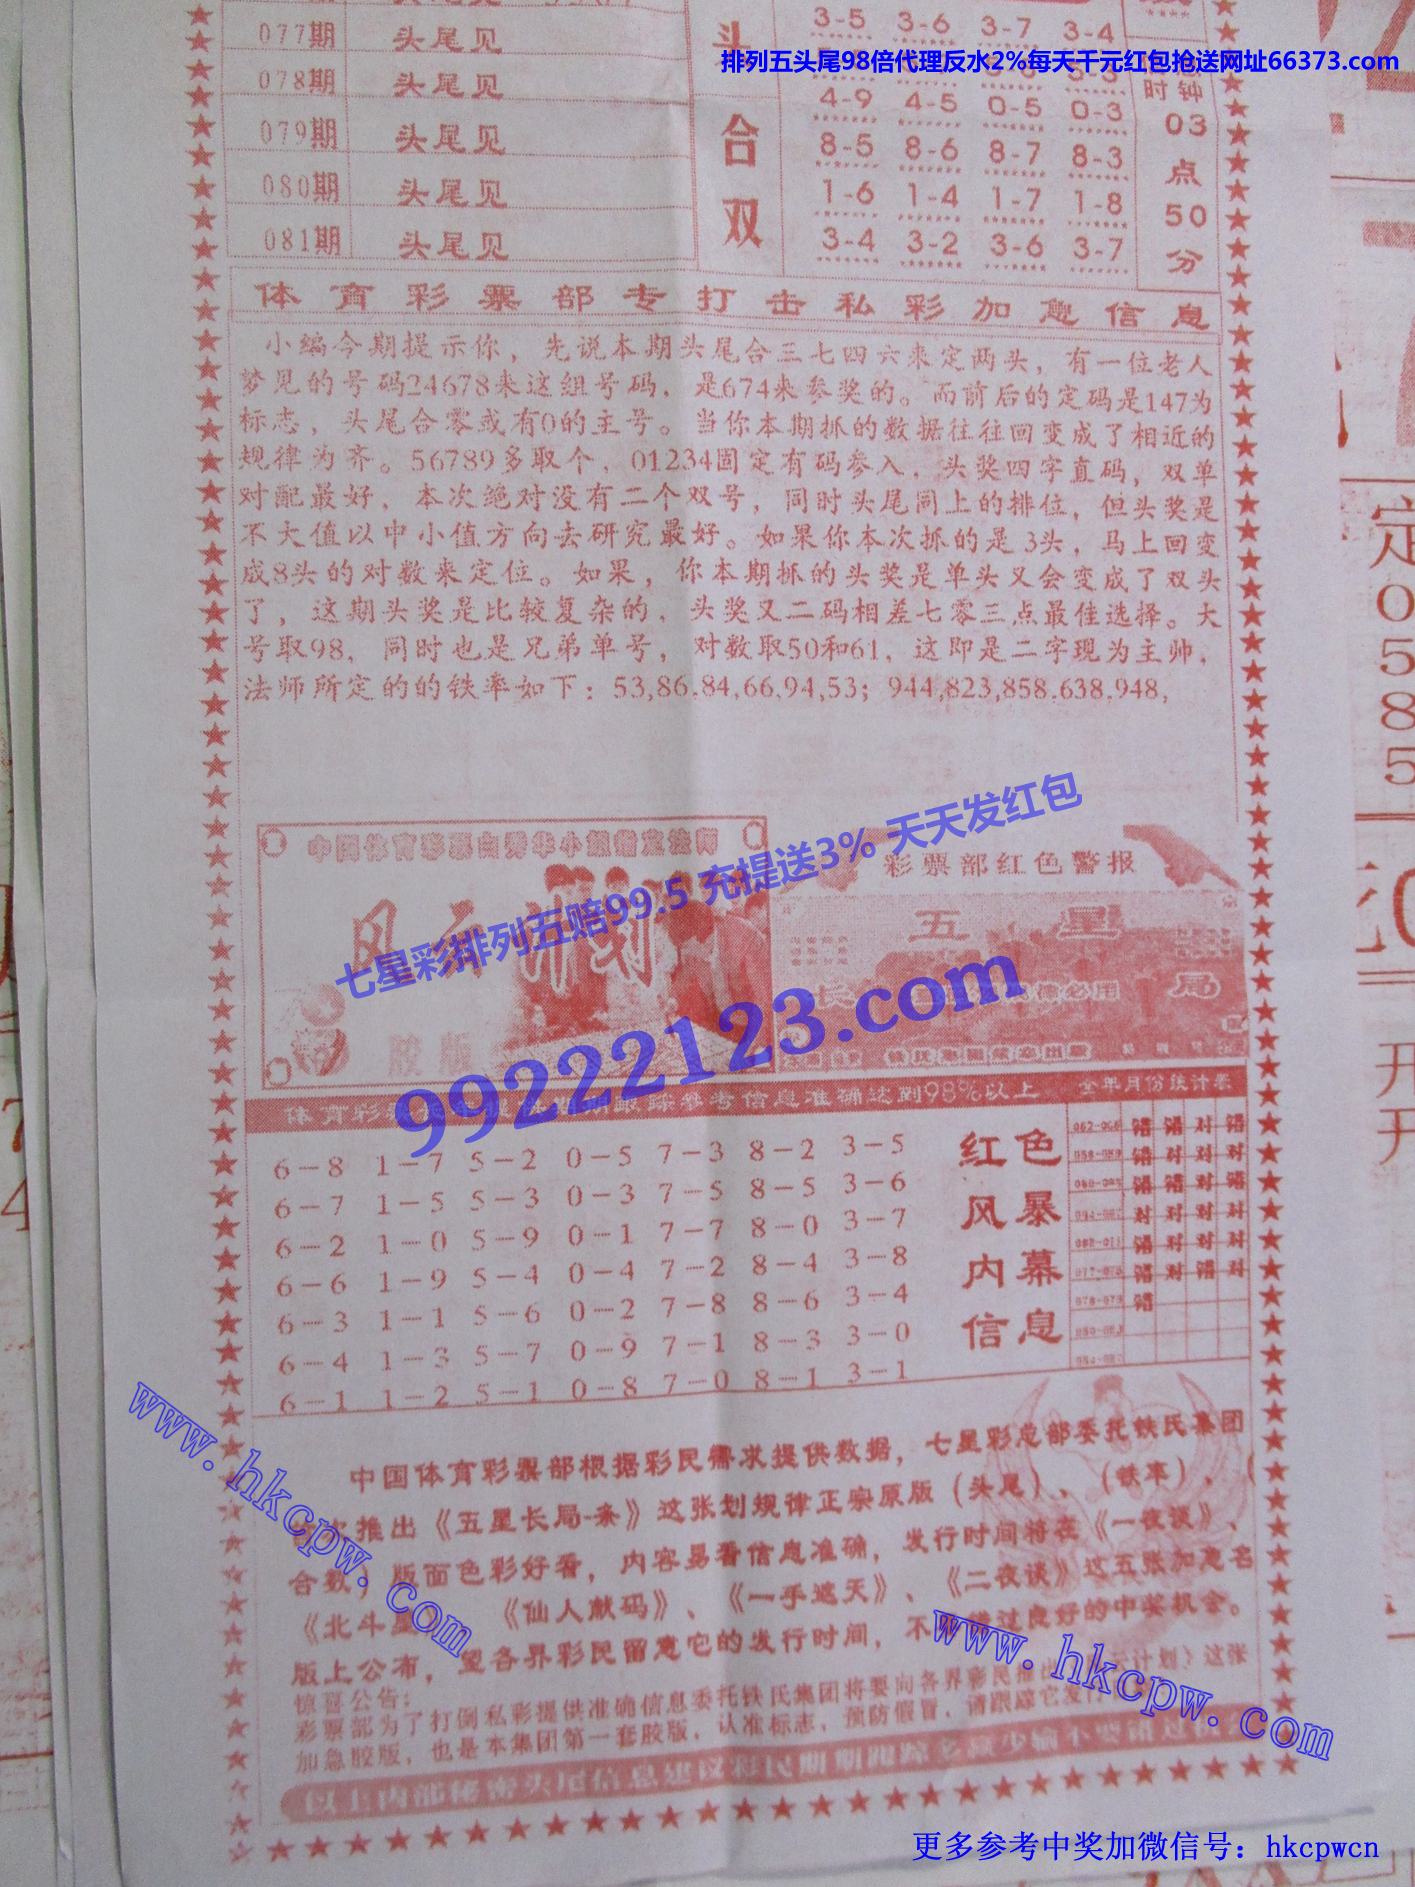 3-5 3-6 3-7 3-4
077期 头尾见
排列五头尾98倍代理反水2%每天千元红包抢送网址66373.com
078期 头尾见
时钟
4-9 4-5 0-5 0-3
03
079期 头尾见
8-5 8-6 8-7 8-3
合
点
080期 头尾见
1-6 1-4 1-7 1-8
双
50
081期 头尾见
3-4 3-2 3-6 3-7
分
体育彩票部专打击私彩加急信息
小编今期提示你，先说本期头尾合三七四六来定两头，有一位老人
梦见的号码24678来这组号码，是674来参奖的。而前后的定码是147为
标志，头尾合零或有0的主号。当你本期抓的数据往往回变成了相近的
规律为齐。56789多取个，01234固定有码参入，头奖四字直码，双单
对配最好，本次绝对没有二个双号，同时头尾同上的排位，但头奖是
不大值以中小值方向去研究最好。如果你本次抓的是3头，马上回变
成8头的对数来定位。如果，你本期抓的头奖是单头又会变成了双头
了，这期头奖是比较复杂的，头奖又二码相差七零三点最佳选择。大
号取98，同时也是兄弟单号，对数取50和61，这即是二字现为主帅，
法师所定的的铁率如下：53,86,84,66,94,53；944,823,858,638,948,
七星彩排列五赔99.5 充提送3% 天天发红包
彩票部红色警报
五星
局
胶版
99222123.com
信息准确达到98%以上 全年月份统计表
6-8 1-7 5-2 0-5 7-3 8-2 3-5
6-7 1-5 5-3 0-3 7-5 8-5 3-6
6-2 1-0 5-9 0-1 7-7 8-0 3-7
6-6 1-9 5-4 0-4 7-2 8-4 3-8
6-3 1-1 5-6 0-2 7-8 8-6 3-4
6-4 1-3 5-7 0-9 7-1 8-3 3-0
6-1 1-2 5-1 0-8 7-0 8-1 3-1
红色
风暴
内幕
信息
错 错 对 错
错 对 对 对
错 错 对 错
对 对 对 对
错 对 对 对
错 对 错 对
错
中国体育彩票部根据彩民需求提供数据，七星彩总部委托铁氏集团
推出《五星长局-条》这张划规律正宗原版（头尾）、（铁率）、（
合数）版面色彩好看，内容易看信息准确，发行时间将在《一夜谈》、
《北斗星》《仙人献码》、《一手遮天》、《二夜谈》这五张加急名
版上公布，望各界彩民留意它的发行时间，不要错过良好的中奖机会。
惊喜公告：
彩票部为了打倒私彩提供准确信息委托铁氏集团将要向各界彩民推出 计划）这张
加急胶版，也是本集团第一套胶版，认准标志，预防假冒，请跟踪它发行
以上内部秘密头尾信息建议彩民期期跟踪多赢少输不要错过
www.hkcpw.com
www.hkcpw.com
更多参考中奖加微信号：hkcpwcn